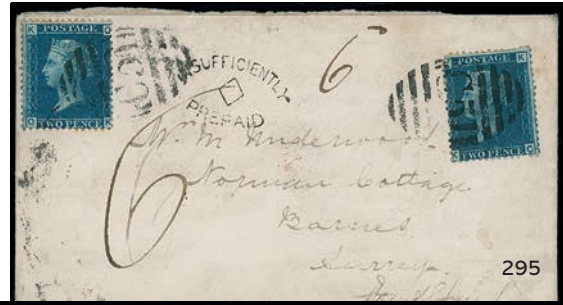 POSTAGE
K O
O K
TWO PENCE
INSUFFICIENTLY
PREPAID
6
POSTAGE
O K
K O
TWO PENCE
6
Wm Underwood
Norman Cottage
Barnes
Surrey
295